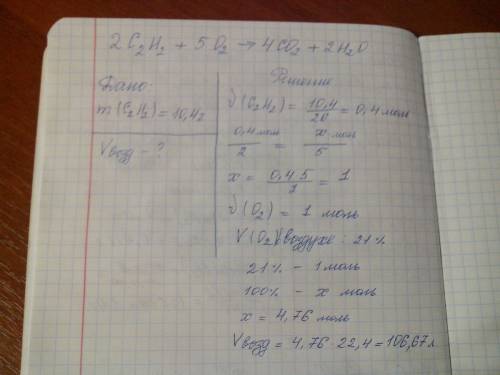 2C₂H₂ + 5O₂ → 4CO₂ + 2H₂O
Дано:
m(C₂H₂) = 10,4г
Vвозд - ?
Решение
ν(C₂H₂) = 10,4/20 = 0,4 моль
0,4 моль/2 = x моль/5
x = 0,4·5/2 = 1
ν(O₂) = 1 моль
V(O₂) в воздухе: 21%
21% - 1 моль
100% - x моль
x = 4,76 моль
Vвозд = 4,76 · 22,4 = 106,67 л